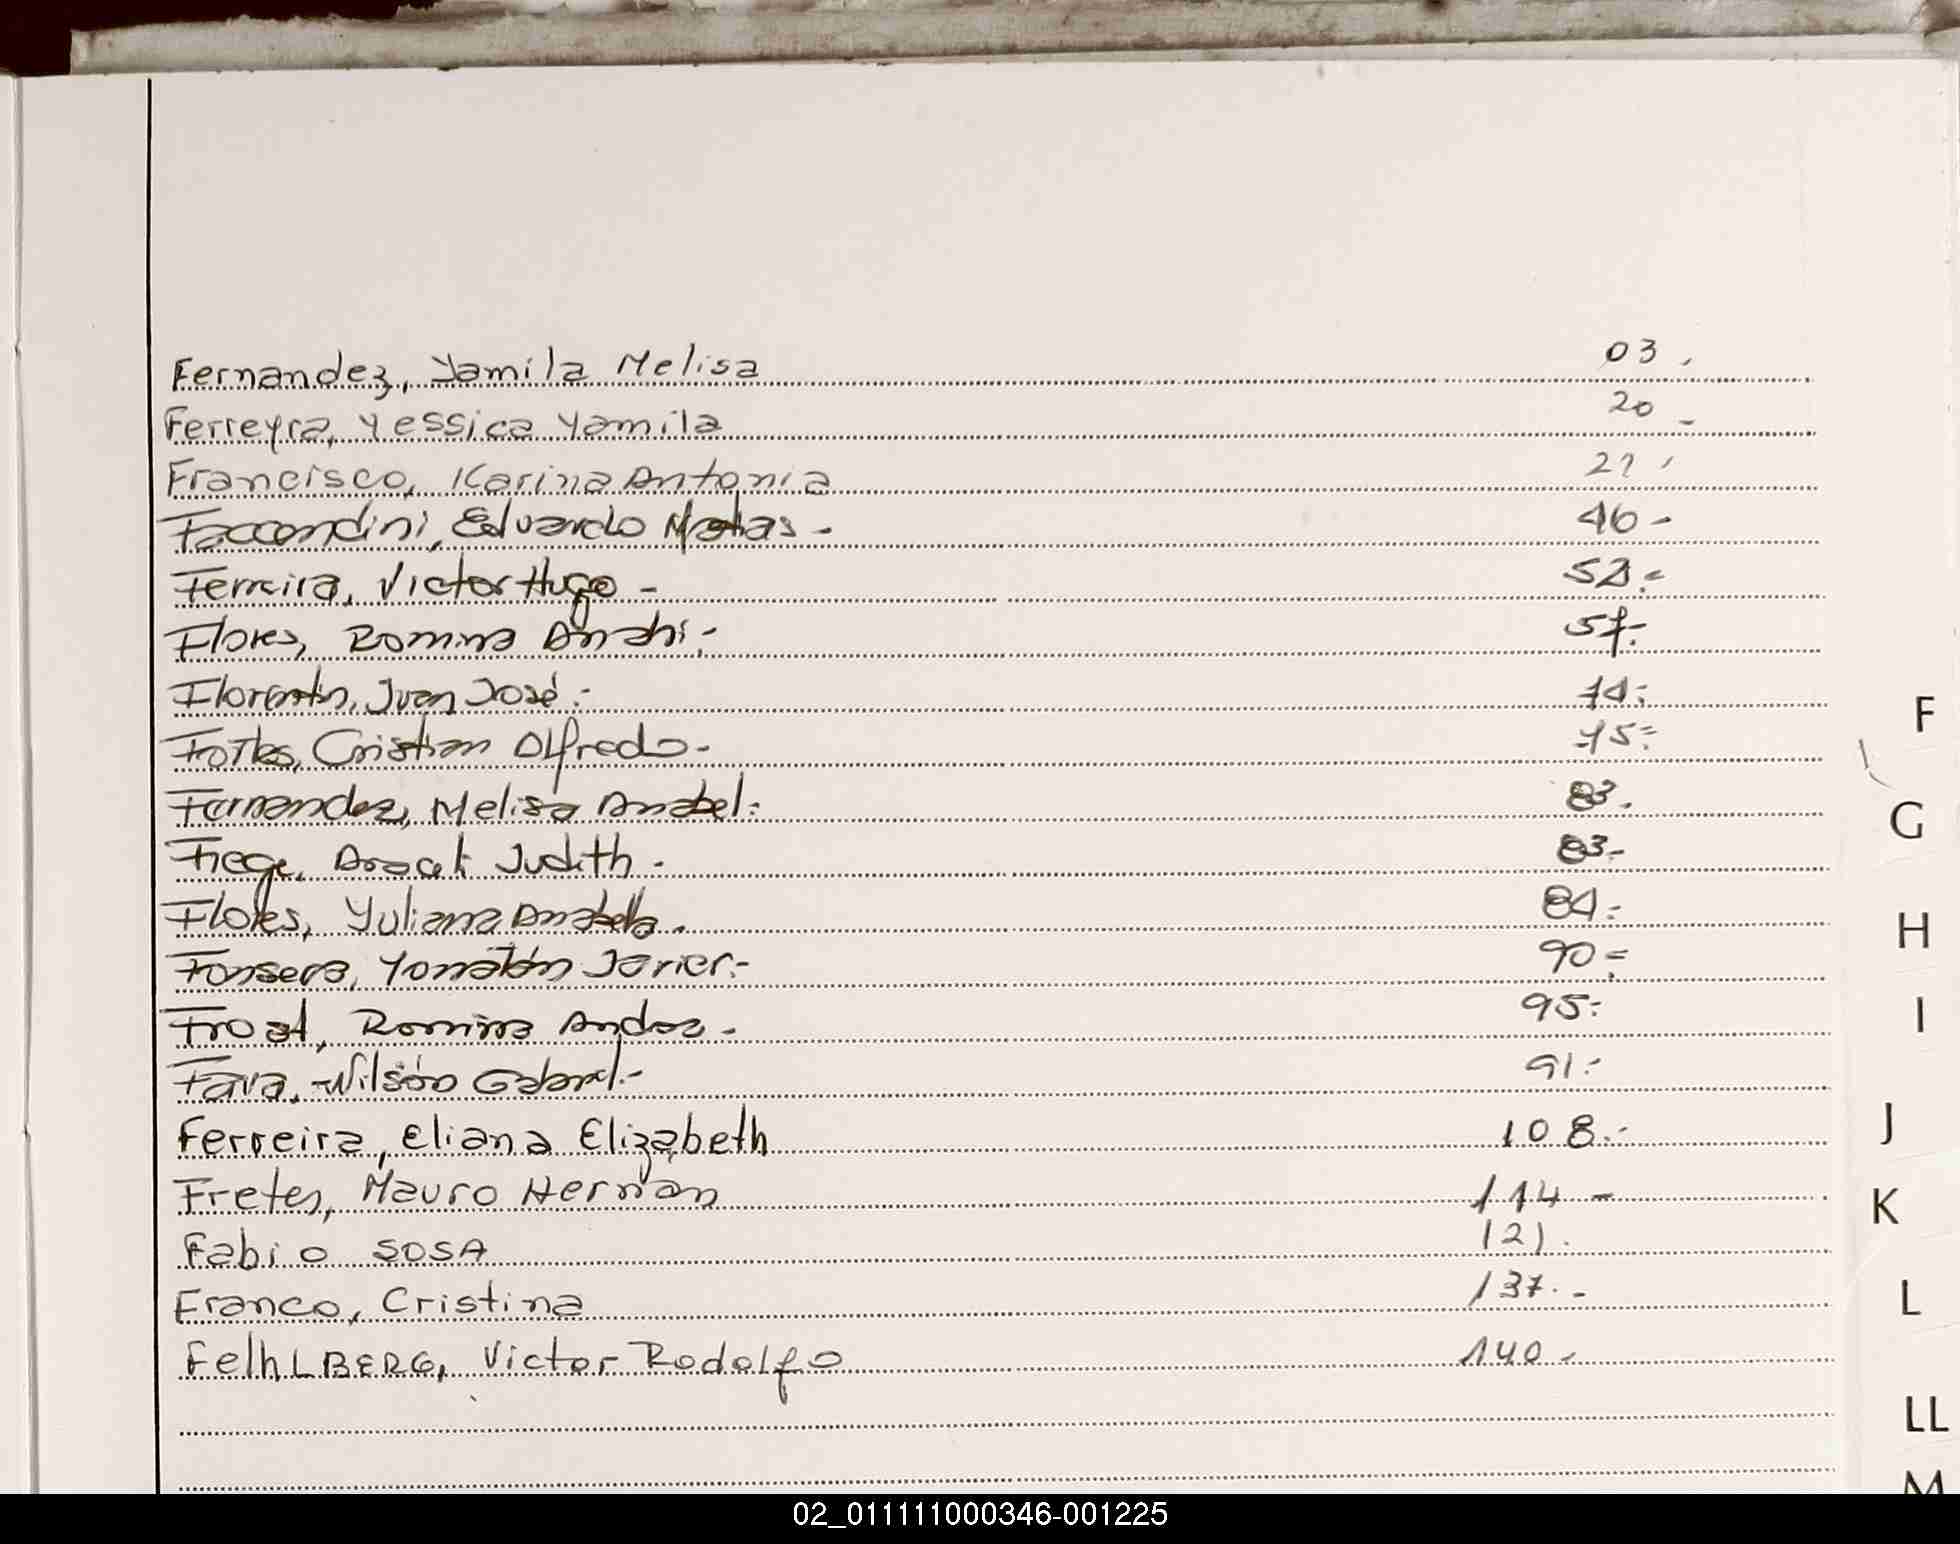 Fernandez, Yamila Melisa 03.
Ferreyra, Yessica Yamila 20 -
Francisco, Karina Antonia 27 .
Faccendini, Eduardo Matias - 46 -
Ferreira, Victor Hugo - 52.-
Flores, Romina Anahi.- 57.-
Florentin, Juan José.- 74.-
Cristian Alfredo - 75.-
Fernandez, Melisa Anabel.- 83.-
Fiege, Araceli Judith - 83.-
Flores, Yuliana Anabella. 84.-
Fonseca, Yonatan Javier.- 90.-
Romina Andrea - 95.-
Fava, Wilson Gabriel.- 91.-
Ferreira, Eliana Elizabeth 108.-
Fretes, Mauro Hernan 114 -
Fabio SOSA 121.
Franco, Cristina 137. -
FelhLBERG, Victor Rodolfo 140 -
F
G
H
I
J
K
L
LL
M
02_011111000346-001225